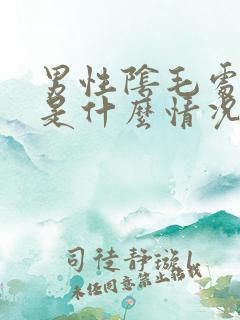 男性陰毛露
是什麼情況
司徒静璇
未经同意禁止转载